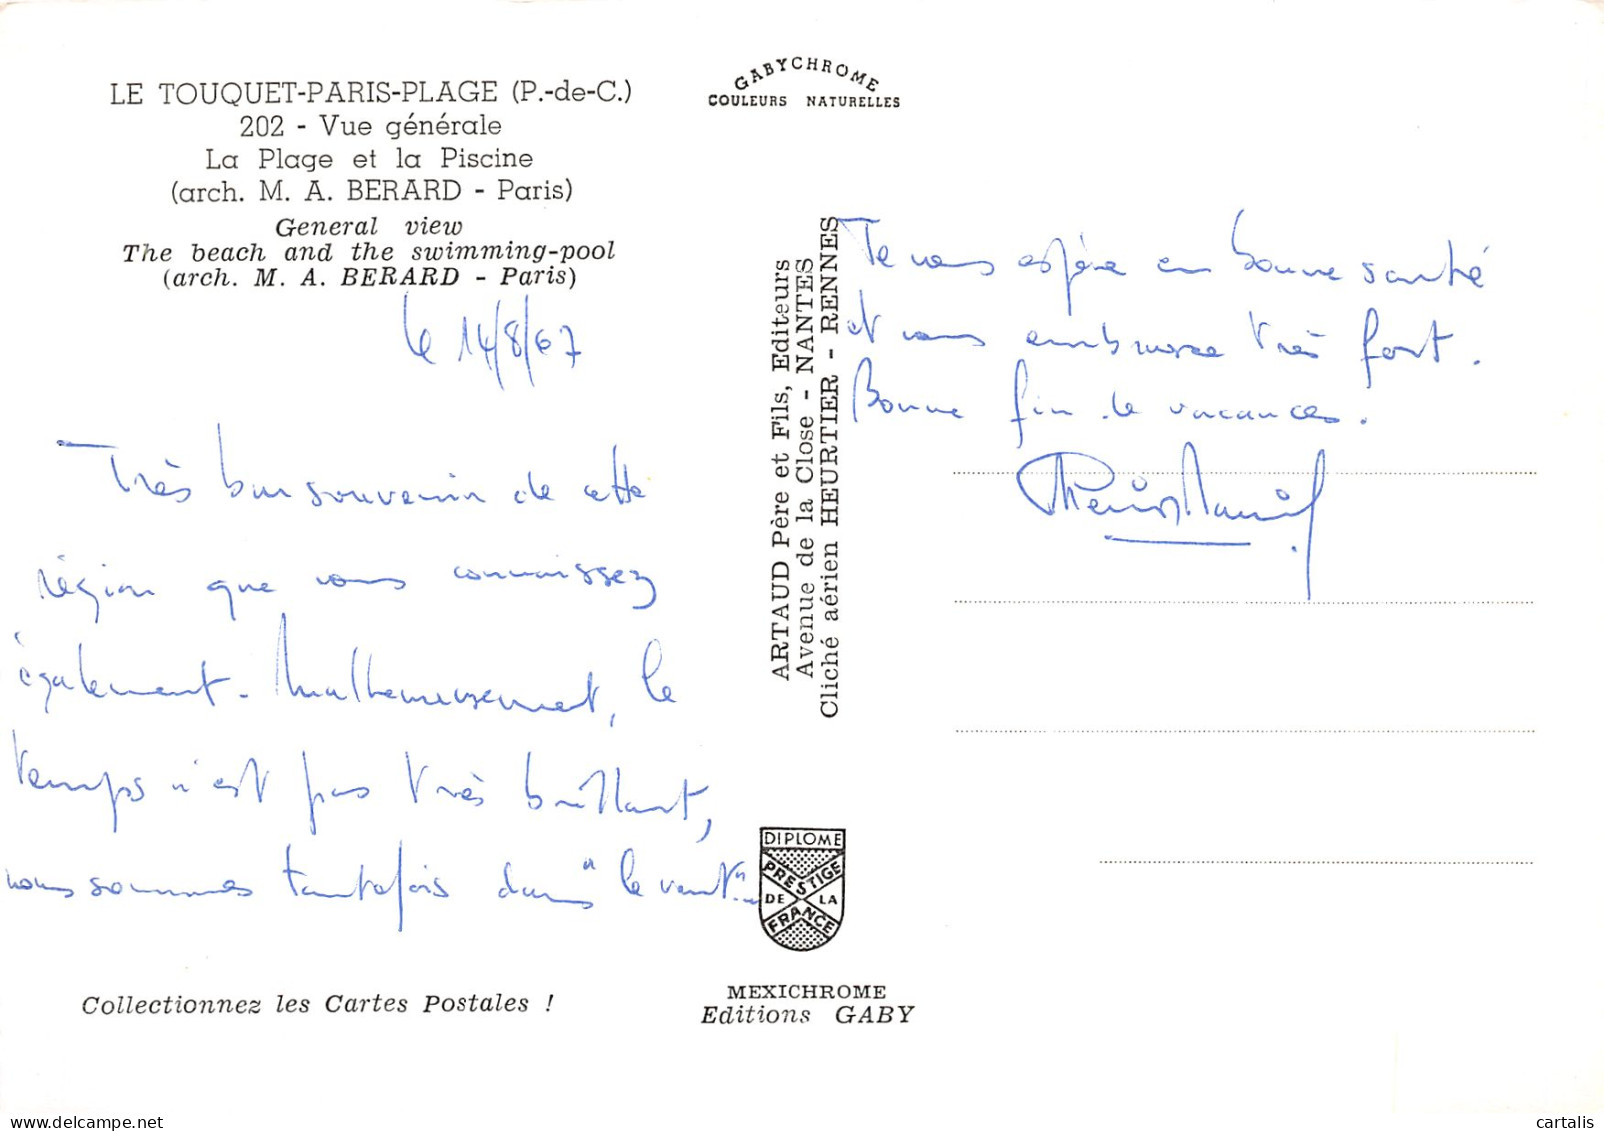 LE TOUQUET-PARIS-PLAGE (P.-de-C.)
202 - Vue générale
La Plage et la Piscine
(arch. M. A. BERARD - Paris)
General view
The beach and the swimming-pool
(arch. M. A. BERARD - Paris)
le 14/8/67
Très bon souvenir de cette
région que vous connaissez
également. Malheureusement, le
temps n'est pas très brillant,
nous sommes toutefois dans "le vent"..
Collectionnez les Cartes Postales !
GABYCHROME
COULEURS NATURELLES
ARTAUD Père et Fils, Editeurs
Avenue de la Close - NANTES
Cliché aérien HEURTIER - RENNES
DIPLOME
PRESTIGE
DE LA
FRANCE
MEXICHROME
Editions GABY
Je vous espère en bonne santé
et vous embrasse très fort.
Bonne fin de vacances.
cartalis